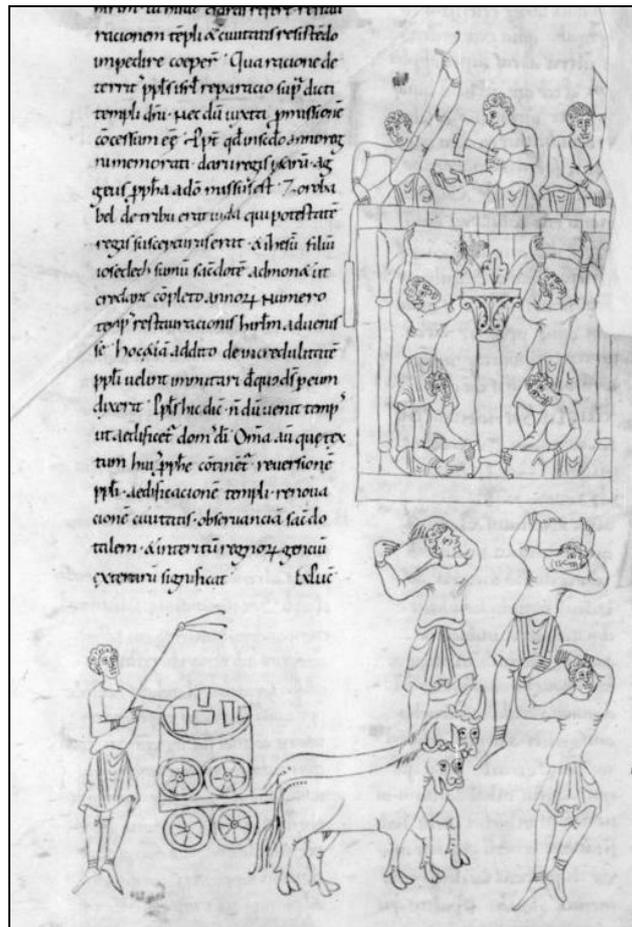 refert
racionem tēpli & ciuitatis resistēdo
impedire coeper̄ · Qua racione de
territ᾽ ppl̄s isrl̄ reparacio sup̄ dicti
templi dn̄i · Nec dū iuxta p̄missionē
cōcessum eē · Apt̄ qđ in secdo anno reg
ni memorati · darii regis psarū · ag
geus ppħa a dō missus est · Zoroba
bel de tribu erat iuda qui potestatē
regis erat · & ihesū filiū
iosedech sumū sacdotē admon& ut
credant cōpleto annoꝝ numero
temp᾽ restauracionis hirlm̄ aduenis
se hoc &iā addito de incredulitate
ppli uelut inmutari quod d̄s p eum
dixerit · Ppl̄s hic dic̄ · n̄ dū uenit temp᾽
ut aedificet᾽ dom᾽ dī · Om̄a aū que tex
tum hui᾽ ppħe cōtinet᾽ reuersionē
ppli · aedificacionē templi · renoua
cionē ciuitatis · obseruanciā sacdo
talem · & interitū regnoꝝ genciū
exterarū significat